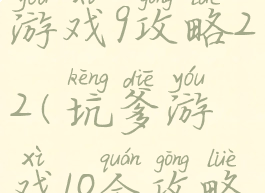 yóu xì gōng lüè
游戏9攻略2
kēng diē yóu
2(坑爹游
xì quán gōng lüè
戏10全攻略